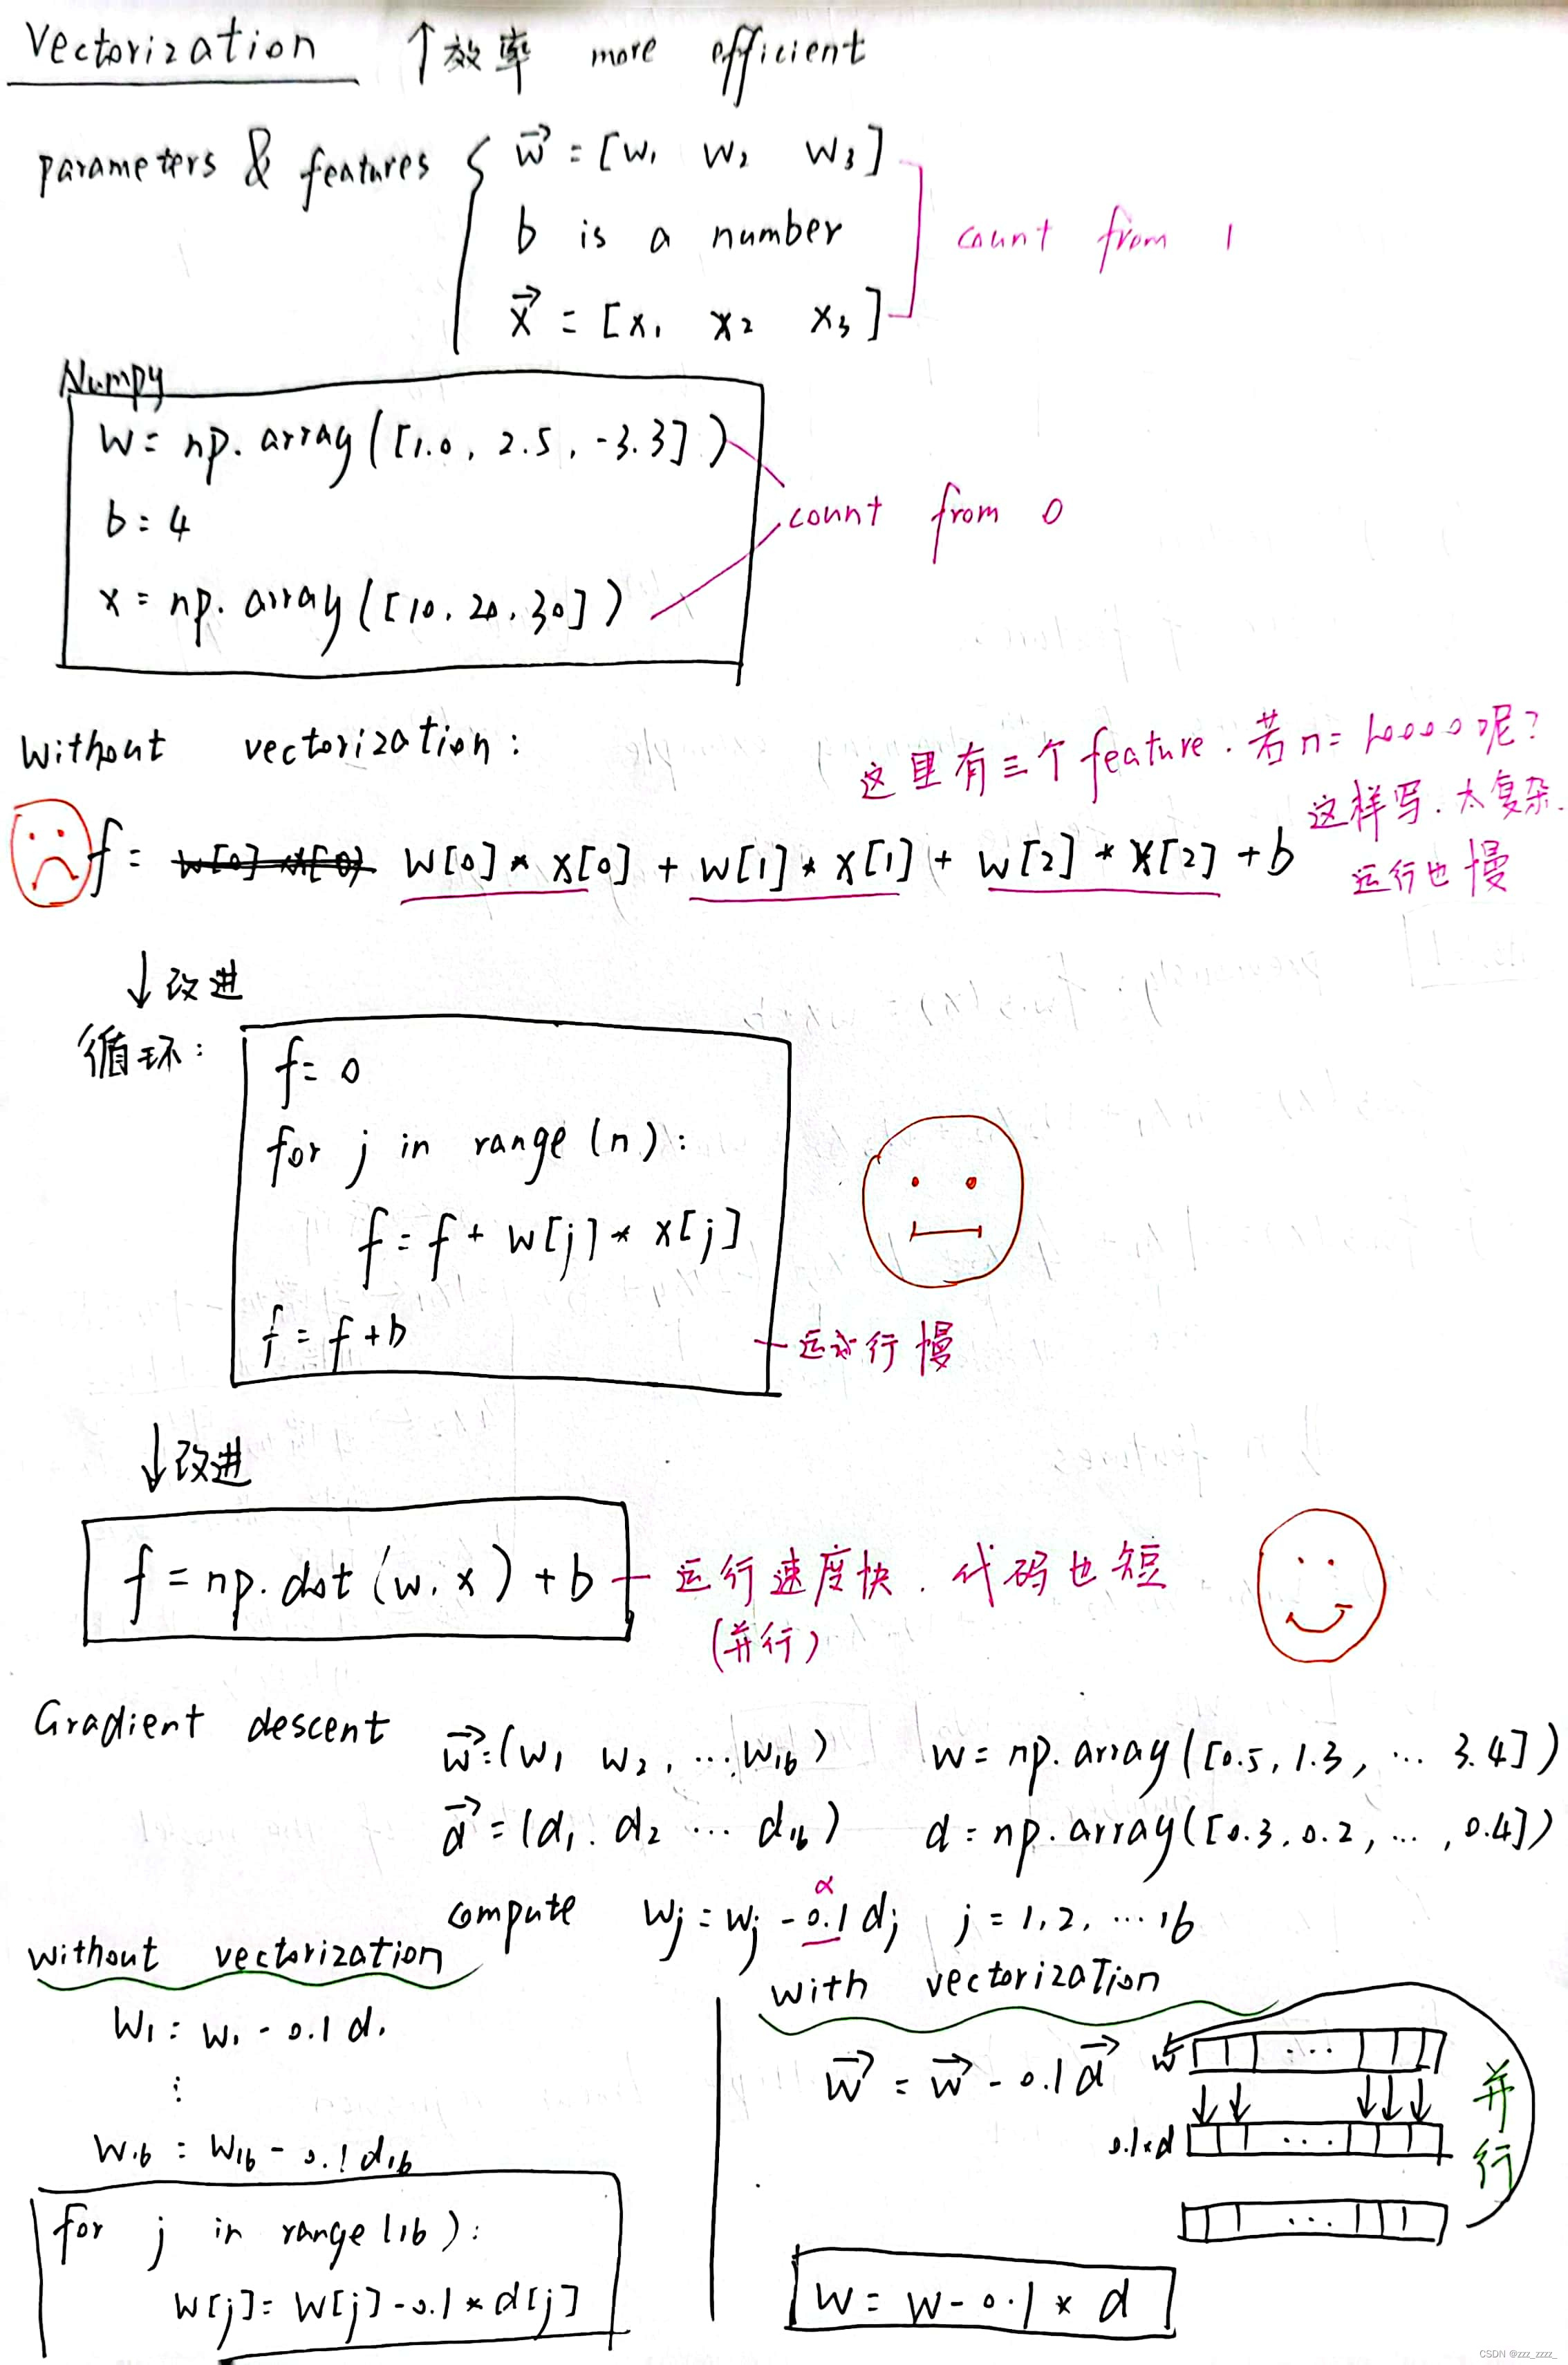 Vectorization ↑效率 more efficient
parameters & features { w⃗ = [w₁ w₂ w₃]
b is a number
count from 1
x⃗ = [x₁ x₂ x₃]
Numpy
w = np.array([1.0, 2.5, -3.3])
b = 4
count from 0
x = np.array([10, 20, 30])
Without vectorization:
这里有三个feature.若n=10000呢?
这样写.太复杂.
运行也慢
f = w[0]*x[0] + w[1]*x[1] + w[2]*x[2] + b
↓改进
循环:
f = 0
for j in range(n):
f = f + w[j] * x[j]
f = f + b
运行慢
↓改进
f = np.dot(w, x) + b 运行速度快.代码也短
(并行)
Gradient descent
w⃗ = (w₁ w₂, ... w₁₆) w = np.array([0.5, 1.3, ... 3.4])
d⃗ = (d₁. d₂ ... d₁₆) d = np.array([0.3, 0.2, ..., 0.4])
α
compute wⱼ = wⱼ - 0.1 dⱼ j = 1, 2, ... 16
without vectorization
w₁ = w₁ - 0.1 d₁
⋮
w₁₆ = w₁₆ - 0.1 d₁₆
for j in range(16):
w[j] = w[j] - 0.1 * d[j]
with vectorization
w⃗ = w⃗ - 0.1 d⃗
w ...
0.1×d ...
...
并行
w = w - 0.1 * d
CSDN @zzz_zzzz_